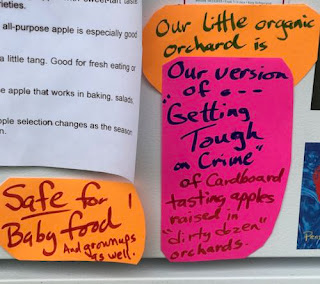 rieties.
all-purpose apple is especially good
a little tang. Good for fresh eating or
e apple that works in baking, salads,
pple selection changes as the season
n.
Our little organic
orchard is
Our version
of ° - - -
"Getting
Tough
on Crime"
of Cardboard
tasting apples
raised in
"dirty dzen"
orchards.
Safe for
Baby food !
And grownups
as well.